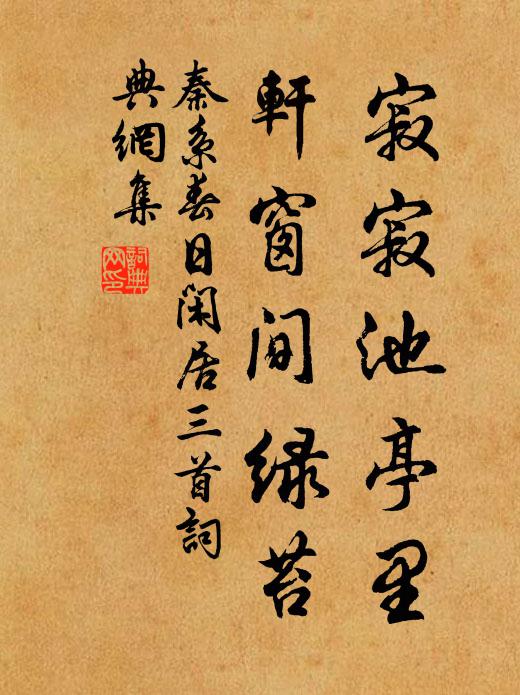 寂寂池亭里
軒窗间緑苔
秦系春日閑居三首詞
典網集
詞典
网印